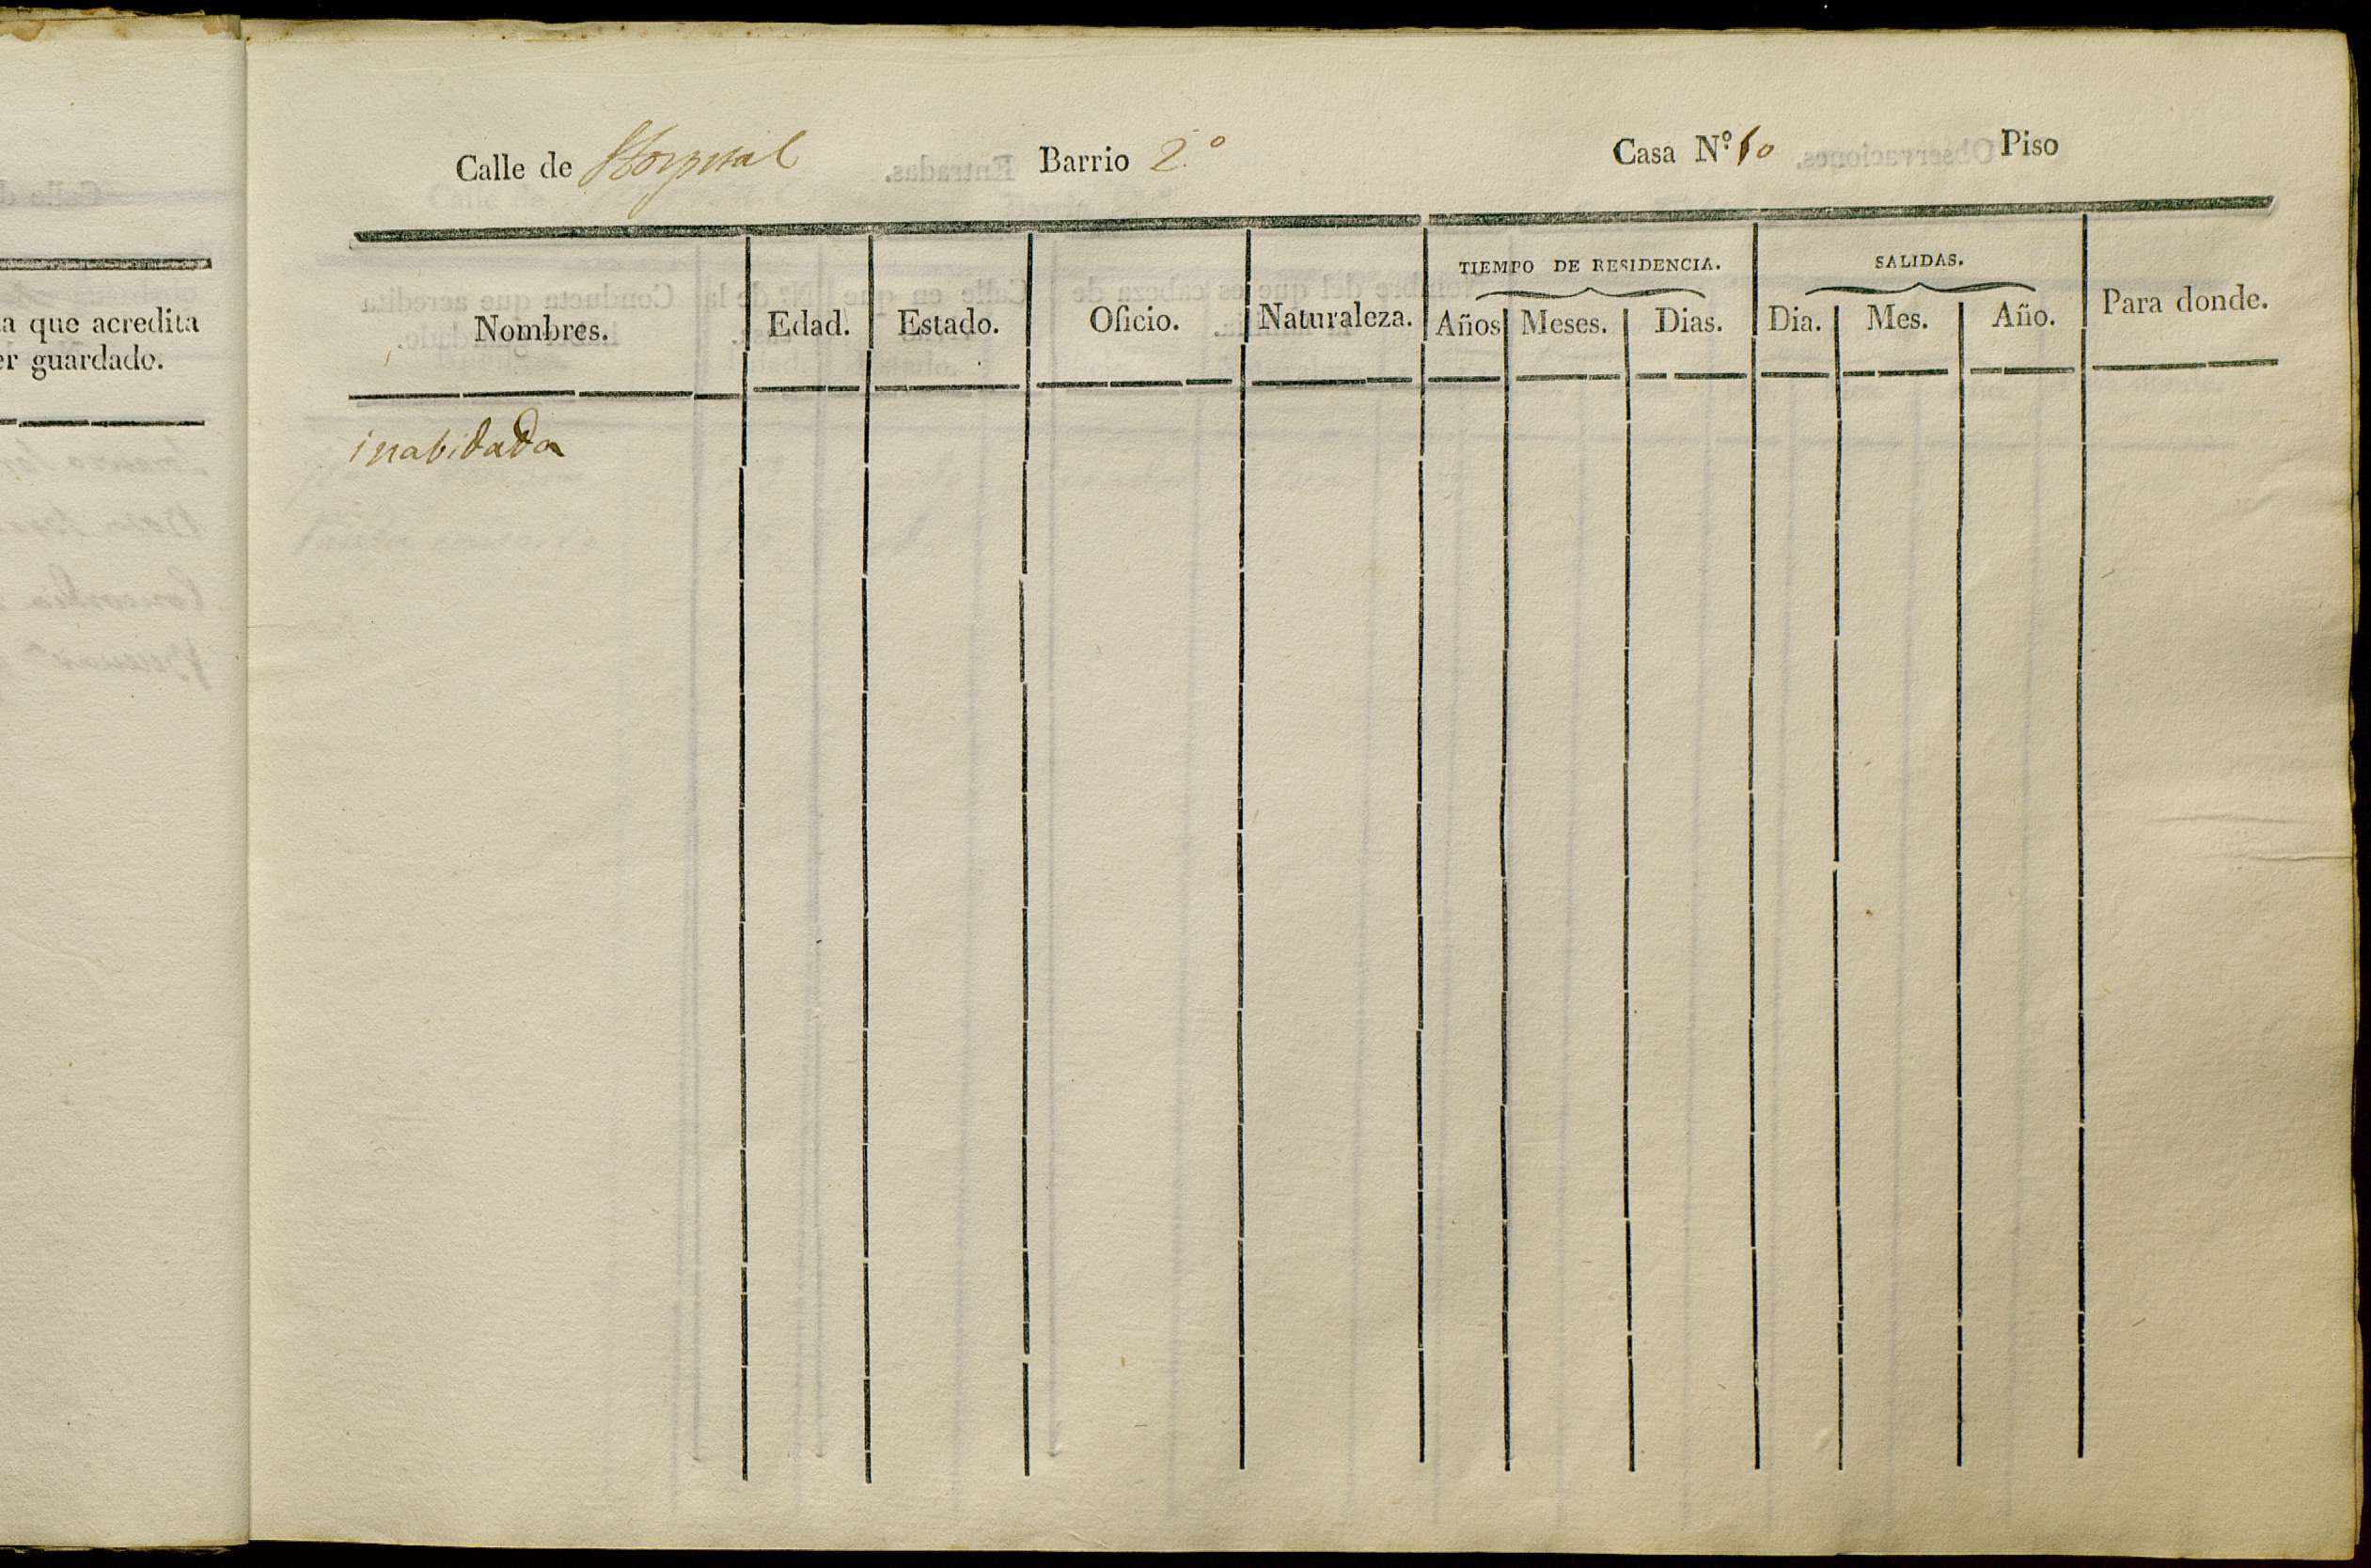 a que acredita
er guardado.
Calle de Hospital Barrio 2.º Casa N.º 10 Piso
TIEMPO DE RESIDENCIA. SALIDAS.
Nombres. Edad. Estado. Oficio. Naturaleza. Años Meses. Dias. Dia. Mes. Año. Para donde.
inabidada